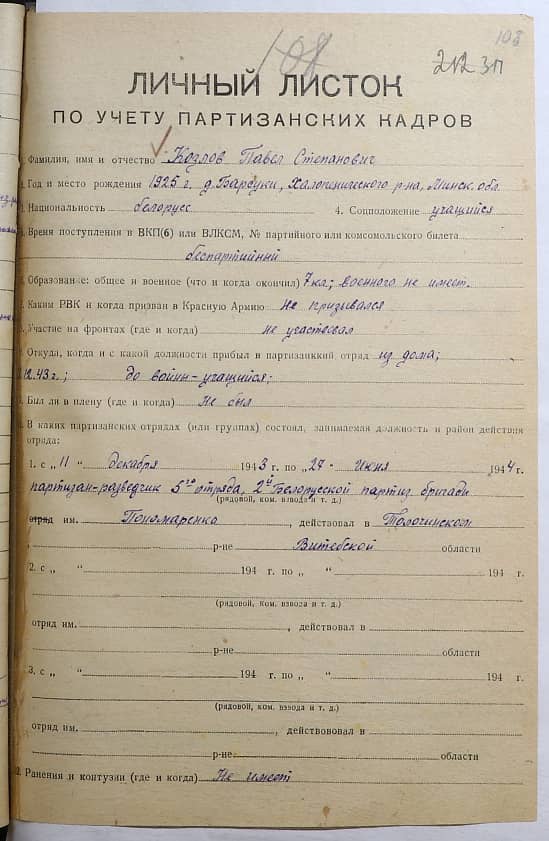 108
103
212 ЗП
ЛИЧНЫЙ ЛИСТОК
ПО УЧЕТУ ПАРТИЗАНСКИХ КАДРОВ
Фамилия, имя и отчество Козлов Павел Степанович
Год и место рождения 1925 г. д. Барсуки, Халопинического р-на, Минск. обл.
Национальность белорусс 4. Соцположение учащийся
Время поступления в ВКП(б) или ВЛКСМ, № партийного или комсомольского билета
беспартийный
Образование: общее и военное (что и когда окончил) 7 кл; военного не имеет.
Каким РВК и когда призван в Красную Армию не призывался
Участие на фронтах (где и когда) не участвовал
Откуда, когда и с какой должности прибыл в партизанккий отряд из дома;
12.43 г.; до войны-учащийся;
Был ли в плену (где и когда) Не был
В каких партизанских отрядах (или группах) состоял, занимаемая должность и район действия
отряда:
1. с „11 “ декабря 1943 г. по „27 “ Июня 1944 г.
партизан-разведчик 5го отряда, 2й Белорусской партиз бригады
(рядовой, ком. взвода и т. д.)
отряд им. Пономаренко, действовал в Толочинском
р-не Витебской области
2. с „ “ 194 г. по „ “ 194 г.
(рядовой, ком. взвода и т. д.)
отряд им. , действовал в
р-не области
3. с „ “ 194 г. по „ “ 194 г.
(рядовой, ком. взвода и т. д.)
отряд им. , действововал в
р-не области
Ранения и контузии (где и когда) Не имеет